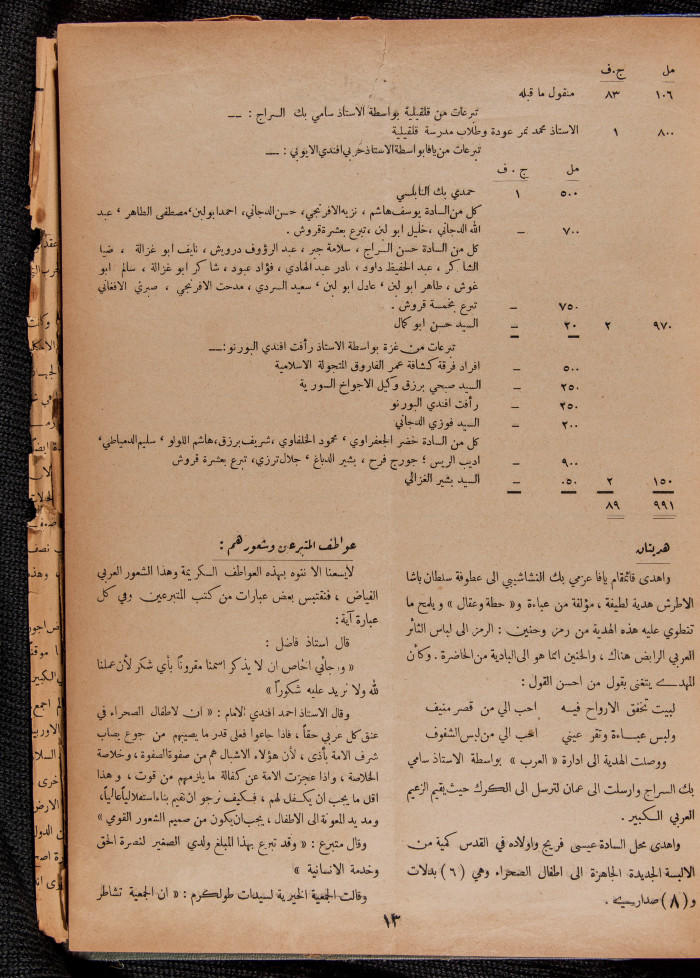 مل ج.ف
١٠٦ ٨٣ منقول ما قبله
تبرعات من قلقيلية بواسطة الاستاذ سامي بك السراج : —
٨٠٠ ١ الاستاذ محمد نمر عودة وطلاب مدرسة قلقيلية
تبرعات من يافا بواسطة الاستاذ حربي افندي الايوبي : —
مل ج . ف
٥٠٠ ١ حمدي بك النابلسي
كل من السادة يوسف هاشم ، نزيه الافرنجي، حسن الدجاني، احمد ابولبن، مصطفى الطاهر ، عبد
٧٠٠ – الله الدجاني ، خليل ابو لبن ، تبرع بعشرة قروش .
كل من السادة حسن السراج ، سلامة جبر ، عبد الرؤوف درويش ، نايف ابو غزالة ، ضيا
الشاكر ، عبد الحفيظ داود ، نادر عبد الهادي ، فؤاد عبود ، شاكر ابو غزالة ، سالم ابو
غوش ، طاهر ابو لبن ، عادل ابو لبن ، سعيد السردي ، مدحت الافرنجي ، صبري الافغاني
٧٥٠ – تبرع بخمسة قروش .
٩٧٠ ٢ ٢٠ – السيد حسن ابو كمال
تبرعات من غزة بواسطة الاستاذ رأفت افندي البورنو :—
٥٠٠ – افراد فرقة كشافة عمر الفاروق المتجولة الاسلامية
٢٥٠ – السيد صبحي برزق وكيل الاجواخ السورية
٢٥٠ – رأفت افندي البورنو
٢٠٠ – السيد فوزي الدجاني
كل من السادة خضر الجعفراوي ، محمود الخلفاوي ، شريف برزق، هاشم اللولو ، سليم الدمياطي،
٩٠٠ – اديب الريس ؛ جورج فرح ، بشير الدباغ ، جلال ترزي، تبرع بعشرة قروش
١٥٠ ٢ ٠٥٠ – السيد بشير الغزالي
٩٩١ ٨٩
هديتان
واهدى قائمقام يافا عزمي بك النشاشيبي الى عطوفة سلطان باشا
الاطرش هدية لطيفة ، مؤلفة من عباءة و« حطة وعقال » ويلمح ما
تنطوي عليه هذه الهدية من رمز وحنين : الرمز الى لباس الثائر
العربي الرابض هناك ، والحنين انما هو الى البادية من الحاضرة . وكأن
المهدي يتغنى بقول من احسن القول :
لبيت تخفق الارواح فيه احب الي من قصر منيف
ولبس عباءة وتقر عيني احب الي من لبس الشفوف
ووصلت الهدية الى ادارة « العرب » بواسطة الاستاذ سامي
بك السراج وارسلت الى عمان لترسل الى الكرك حيث يقيم الزعيم
العربي الكبير .
واهدى محل السادة عيسى فريج واولاده في القدس كمية من
الالبسة الجديدة الجاهزة الى اطفال الصحراء وهي (٦) بدلات
و (٨) صداري .
عواطف المتبرعين وشعورهم :
لايسعنا الا ننوه بهذه العواطف الكريمة وهذا الشعور العربي
الفياض ، فنقتبس بعض عبارات من كتب المتبرعين وفي كل
عبارة آية :
قال استاذ فاضل :
« ورجائي الخاص ان لا يذكر اسمنا مقروناً بأي شكر لأن عملنا
لله ولا نريد عليه شكوراً »
وقال الاستاذ احمد افندي الامام : « ان لاطفال الصحراء في
عنق كل عربي حقاً ، فاذا جاعوا فعلى قدر ما يصيبهم من جوع يصاب
شرف الامة بأذى ، لأن هؤلاء الاشبال هم من صفوة الصفوة ، وخلاصة
الخلاصة ، واذا عجزت الامة عن كفالة ما يلزمهم من قوت ، وهذا
اقل ما يجب ان يكفل لهم ، فكيف نرجو ان نقيم بناء استقلالياً عالياً،
ومد يد المعونة الى الاطفال ، يجب ان يكون من صميم الشعور القومي »
وقال متبرع : « وقد تبرع بهذا المبلغ ولدي الصغير لنصرة الحق
وخدمة الانسانية »
وقالت الجمعية الخيرية لسيدات طولكرم : « ان الجمعية تشاطر
١٣